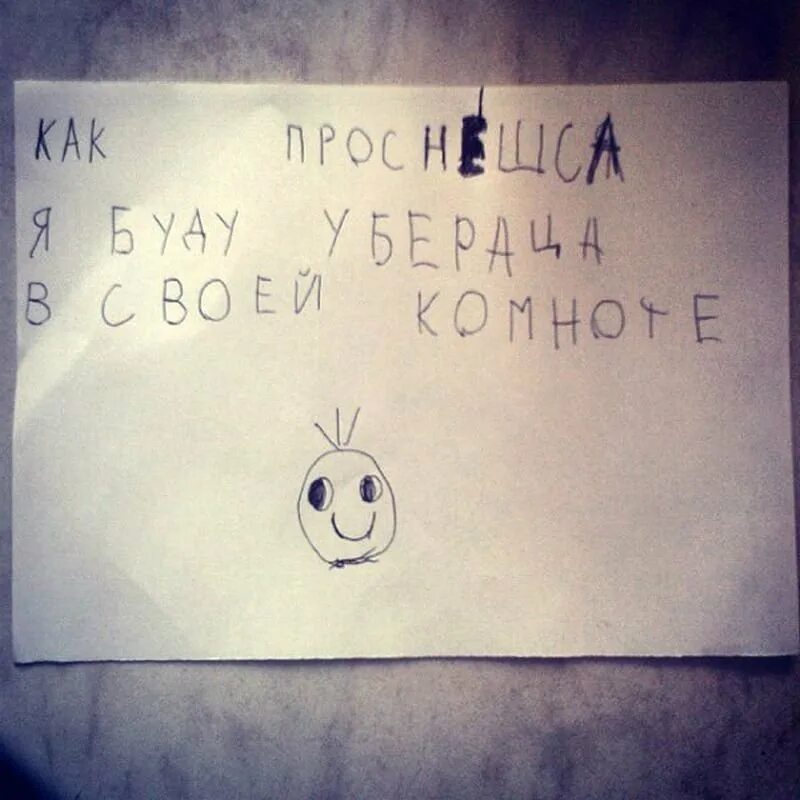 КАК ПРОСНЕШСА
Я БУДУ УБЕРАЦА
В СВОЕЙ КОМНОТЕ